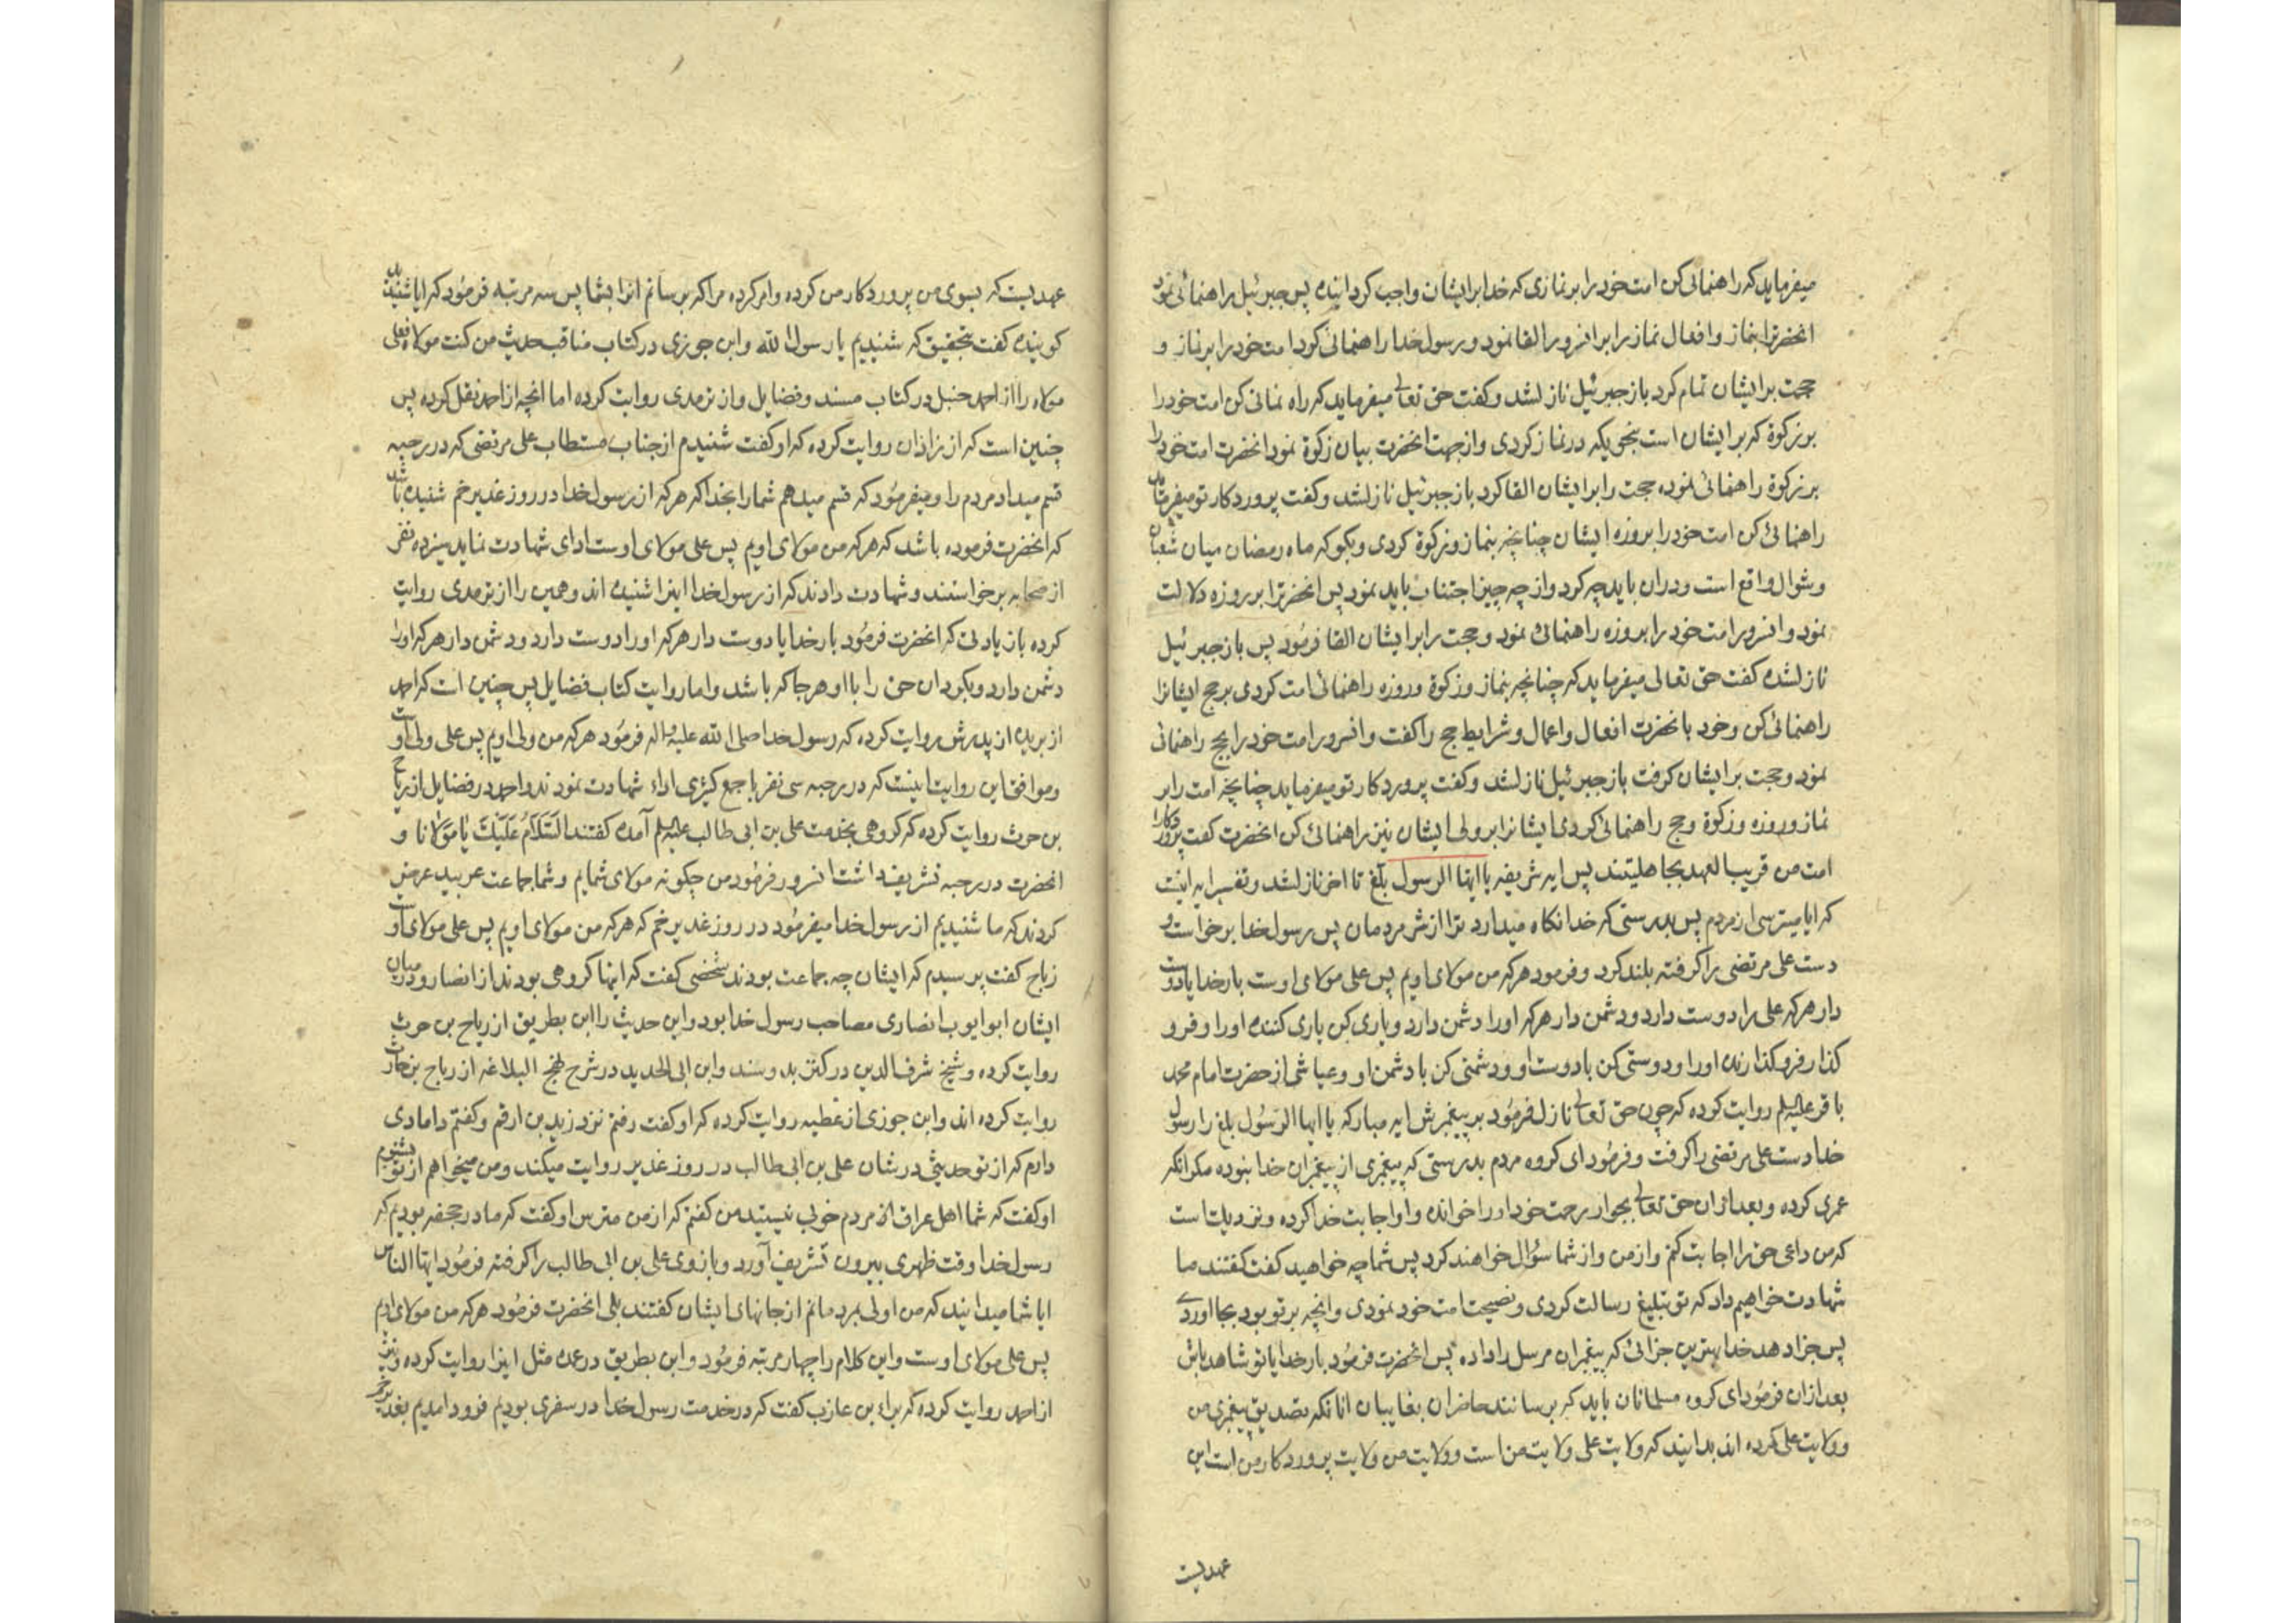 میفرماید که راهنمائی کن امت خود را بر نمازی که خدا بر ایشان واجب کردانیده پس جبرئیل راهنمائی نمود
انحضرترا بنماز وافعال نماز را بر انسرور القا نمود ورسول خدا راهنمائی کرد امت خود را بر نماز و
حجت بر ایشان تمام کرد باز جبرئیل نازلشد وکفت حق تعالی میفرماید که راه نمائی کن امت خود را
بر زکوة که بر ایشان است بنحویکه در نماز کردی وازجهت انحضرت بیان زکوة نمود انحضرت امت خود را
بر زکوة راهنمائی نموده حجت را بر ایشان القا کرد باز جبرئیل نازلشد وکفت پروردکار تو میفرماید
راهنمائی کن امت خود را بروزه ایشان چنانچه بنماز وزکوة کردی وبکو که ماه رمضان میان شعبان
وشوال واقع است ودران باید چه کرد واز چه چیز اجتناب باید نمود پس انحضرترا بر روزه دلالت
نمود وانسرور امت خود را بروزه راهنمائی نمود وحجت را بر ایشان القا فرمود پس باز جبرئیل
نازلشده کفت حق تعالی میفرماید که چنانچه بنماز وزکوة وروزه راهنمائی امت کردی بر حج ایشانرا
راهنمائی کن وخود بانحضرت افعال واعمال وشرایط حج را کفت وانسرور امت خود را بحج راهنمائی
نمود وحجت بر ایشان کرفت باز جبرئیل نازلشد وکفت پروردکار تو میفرماید چنانچه امت را بر
نماز وروزه وزکوة وحج راهنمائی کردی ایشانرا بر ولی ایشان نیز راهنمائی کن انحضرت کفت پروردکارا
امت من قریب العهد بجاهلیتند پس ایه شریفه یا ایها الرسول بلغ تا اخر نازلشد وتفسیر ایه اینست
که ایا میترسی از مردم پس بدرستی که خدا نکاه میدارد ترا از شر مردمان پس رسول خدا برخواست و
دست علی مرتضی را کرفته بلند کرد وفرمود هر که من مولای اویم پس علی مولای اوست بار خدایا دوست
دار هر که علی را دوست دارد ودشمن دار هر که اورا دشمن دارد ویاری کن یاری کننده اورا وفرو
کذار فرو کذارنده اورا ودوستی کن با دوست او ودشمنی کن با دشمن او وعیاشی از حضرت امام محمد
باقر علیه السلم روایت کرده که چون حق تعالی نازل فرمود بر پیغمبرش ایه مبارکه یا ایها الرسول بلغ را رسول
خدا دست علی مرتضی را کرفت وفرمود ای کروه مردم بدرستی که پیغمبری از پیغمبران خدا نبوده مکر انکه
عمری کرده وبعد ازان حق تعالی بجوار رحمت خود اورا خوانده واو اجابت خدا کرده ونزدیکست
که من داعی حق را اجابت کنم واز من واز شما سؤال خواهند کرد پس شما چه خواهید کفت کفتند ما
شهادت خواهیم داد که تو تبلیغ رسالت کردی ونصیحت امت خود نمودی وانچه بر تو بود بجا اوردی
پس جزا دهد خدا بهترین جزائی که پیغمبران مرسل را داده پس انحضرت فرمود بار خدایا تو شاهد باش
بعد ازان فرمود ای کروه مسلمانان باید که برسانند حاضران بغایبان انانکه تصدیق پیغمبری من
وولایت علی کرده اند بدانید که ولایت علی ولایت من است وولایت من ولایت پروردکار من است این
عهدیست
عهدیست که بسوی من پروردکار من کرده وامر کرده مرا که برسانم انرا بشما پس سه مرتبه فرمود که ایا شنیدید
کوینده کفت بتحقیق که شنیدیم یا رسول الله وابن جوزی در کتاب مناقب حدیث من کنت مولاه فعلی
مولاه را از احمد حنبل در کتاب مسند وفضایل واز ترمدی روایت کرده اما انچه از احمد نقل کرده پس
چنین است که از زاذان روایت کرده که او کفت شنیدم از جناب مستطاب علی مرتضی که در رحبه
قسم میداد مردم را ومیفرمود که قسم میدهم شما را بخدا که هر که از رسول خدا در روز غدیر خم شنیده باشد
که انحضرت فرموده باشد که هر که من مولای اویم پس علی مولای اوست ادای شهادت نماید سیزده نفر
از صحابه برخواستند وشهادت دادند که از رسول خدا اینرا شنیده اند وهمین را از ترمدی روایت
کرده باز یادتی که انحضرت فرمود بار خدایا دوست دار هر که اورا دوست دارد ودشمن دار هر که اورا
دشمن دارد وبکردان حق را با او هر جا که باشد واما روایت کتاب فضایل پس چنین است که احمد
از بریده از پدرش روایت کرده که رسول خدا صلی الله علیه واله فرمود هر که من ولی اویم پس علی ولی اوست
وموافق این روایت اینست که در رحبه سی نفر با جمع کثیری اداء شهادت نمودند واحمد در فضایل از ریاح
بن حرث روایت کرده که کروهی بخدمت علی بن ابی طالب علیه السلم آمده کفتند السَّلَامُ عَلَیْكَ یَا مَوْلَانَا و
انحضرت در رحبه تشریف داشت انسرور فرمود من چکونه مولای شمایم وشما جماعت عربید عرض
کردند که ما شنیدیم از رسول خدا میفرمود در روز غدیر خم که هر که من مولای اویم پس علی مولای اوست
ریاح کفت پرسیدم که ایشان چه جماعت بودند شخصی کفت که اینها کروهی بودند از انصار ودر میان
ایشان ابو ایوب انصاری مصاحب رسول خدا بود واین حدیث را ابن بطریق از ریاح بن حرث
روایت کرده وشیخ شرف الدین در کنز بدو سند وابن ابی الحدید در شرح نهج البلاغه از ریاح بن حارث
روایت کرده اند وابن جوزی از عطیه روایت کرده که او کفت رفتم نزد زید بن ارقم وکفتم دامادی
دارم که از تو حدیثی در شان علی بن ابی طالب در روز غدیر روایت میکند ومن میخواهم از تو بشنوم
او کفت که شما اهل عراق از مردم خوبی نیستید من کفتم که از من مترس او کفت که ما در جحفه بودیم که
رسول خدا وقت ظهری بیرون تشریف آورد وبازوی علی بن ابی طالب را کرفته فرمود ایها الناس
ایا شما میدانید که من اولی بمردمانم از جانهای ایشان کفتند بلی انحضرت فرمود هر که من مولای اویم
پس علی مولای اوست واین کلام را چهار مرتبه فرمود وابن بطریق در عمده مثل اینرا روایت کرده ونیز
از احمد روایت کرده که براء بن عازب کفت که در خدمت رسول خدا در سفری بودیم فرود امدیم بغدیر خم